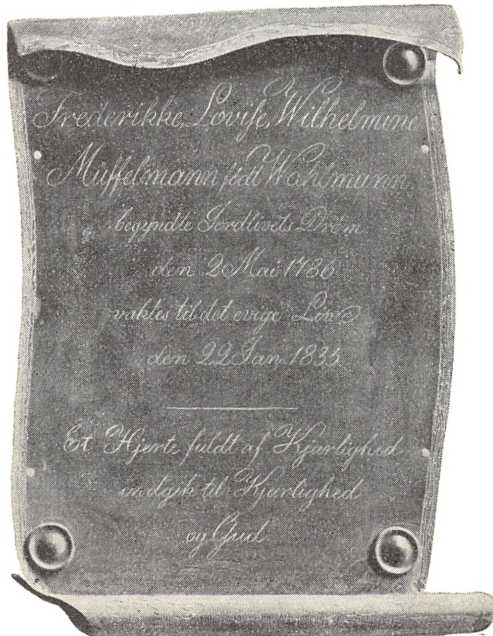 Frederikke Lovise Wilhelmine
Müffelmann født Wahlmann
begyndte Jordlivets Drøm
den 2 Mai 1736
vaktes til det evige Liv
den 22 Jan. 1835.
Et Hjerte fuldt af Kjærlighed
indgik til Kjærlighed
og Gud